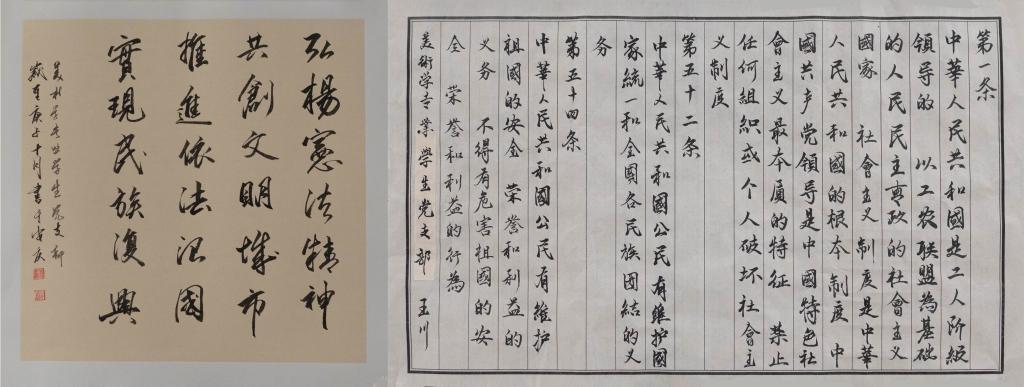 弘楊憲法精神
共創文明城市
推進依法治國
實現民族復興
美术学专业学生党支部
歲在庚子十月書于
第一条
中華人民共和國是工人阶級
領导的 以工农联盟為基础
的人民民主專政的社會主义
國家 社會主义制度是中華
人民共和國的根本制度 中
國共产党領导是中國特色社
會主义最本质的特征 禁止
任何組織或个人破坏社會主
义制度
第五十二条
中華人民共和國公民有維护國
家統一和全國各民族团結的义
务
第五十四条
中華人民共和國公民有維护
祖國的安全 荣誉和利益的
义务 不得有危害祖國的安
全 荣誉和利益的行為
美術学专業学生党支部 王川